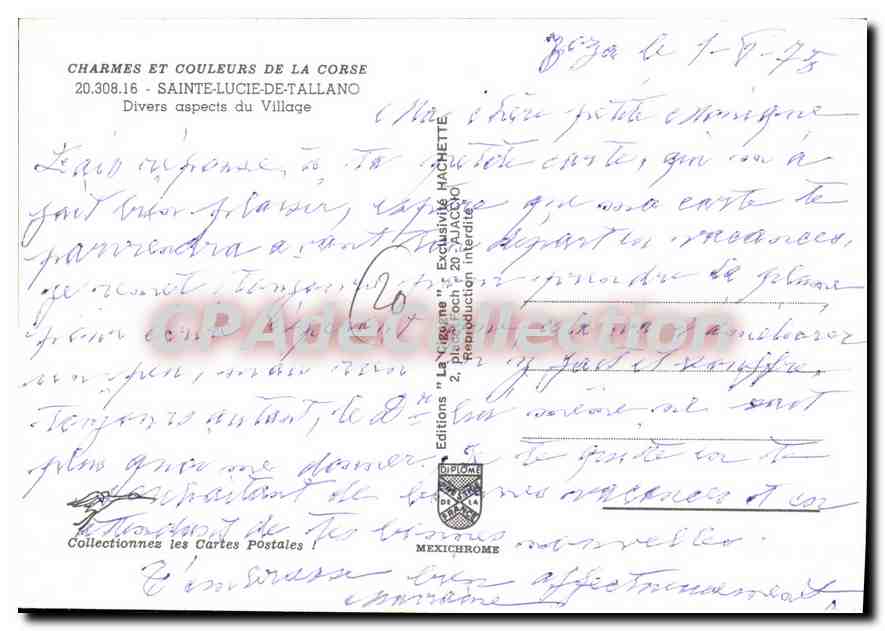 Zoza le 1-V-75
CHARMES ET COULEURS DE LA CORSE
20.308.16 - SAINTE-LUCIE-DE-TALLANO
Divers aspects du Village
Ma chère petite Monique
réponse, à ta carte, qui m'a
fait bien plaisir, espère que ma carte te
parviendra avant ton départ en vacances,
toujours prendre la plume
pour écrire
un peu, mais rien n'y fait et souffre,
toujours autant, le Dr lui même ne sait
plus quoi me donner. Je te quitte en te
souhaitant de bonnes vacances et en
attendant de tes bonnes nouvelles.
T'embrasse bien affectueusement,
Marraine
20
Editions "La Cigogne" - Exclusivité HACHETTE
2, place Foch - 20 AJACCIO
Reproduction interdite
CPAdeCollection
DIPLOME
DE LA
FRANCE
MEXICHROME
Collectionnez les Cartes Postales !